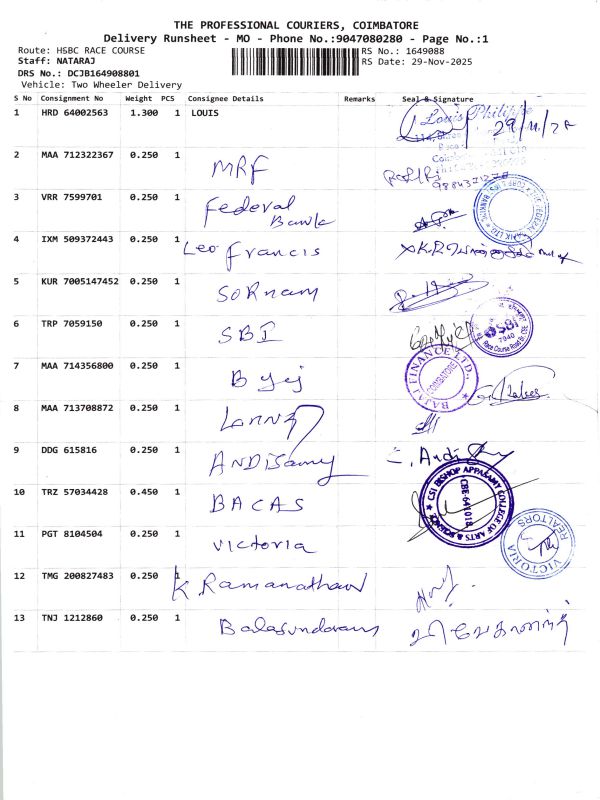 THE PROFESSIONAL COURIERS, COIMBATORE
Delivery Runsheet - MO - Phone No.:9047080280 - Page No.:1
Route: HSBC RACE COURSE
RS No.: 1649088
Staff: NATARAJ
RS Date: 29-Nov-2025
DRS No.: DCJB164908801
Vehicle: Two Wheeler Delivery
S No Consignment No Weight PCS Consignee Details Remarks Seal & Signature
1 HRD 64002563 1.300 1 LOUIS Louis Philippe
2 MAA 712322367 0.250 1 MRF
3 VRR 7599701 0.250 1 Federal Bank
4 IXM 509372443 0.250 1 Leo Francis
5 KUR 7005147452 0.250 1 SORnam
6 TRP 7059150 0.250 1 SBI SBI
7 MAA 714356800 0.250 1 Byij BAJAJ FINANCE LTD., COIMBATORE
8 MAA 713708872 0.250 1
9 DDG 615816 0.250 1 ANDISamy
10 TRZ 57034428 0.450 1 BACAS CSI BISHOP APPASAMY COLLEGE OF ARTS & SCIENCE CBE-641018
11 PGT 8104504 0.250 1 Victoria VICTORIA REALTORS
12 TMG 200827483 0.250 1 K. Ramanathan
13 TNJ 1212860 0.250 1 Balasundaram